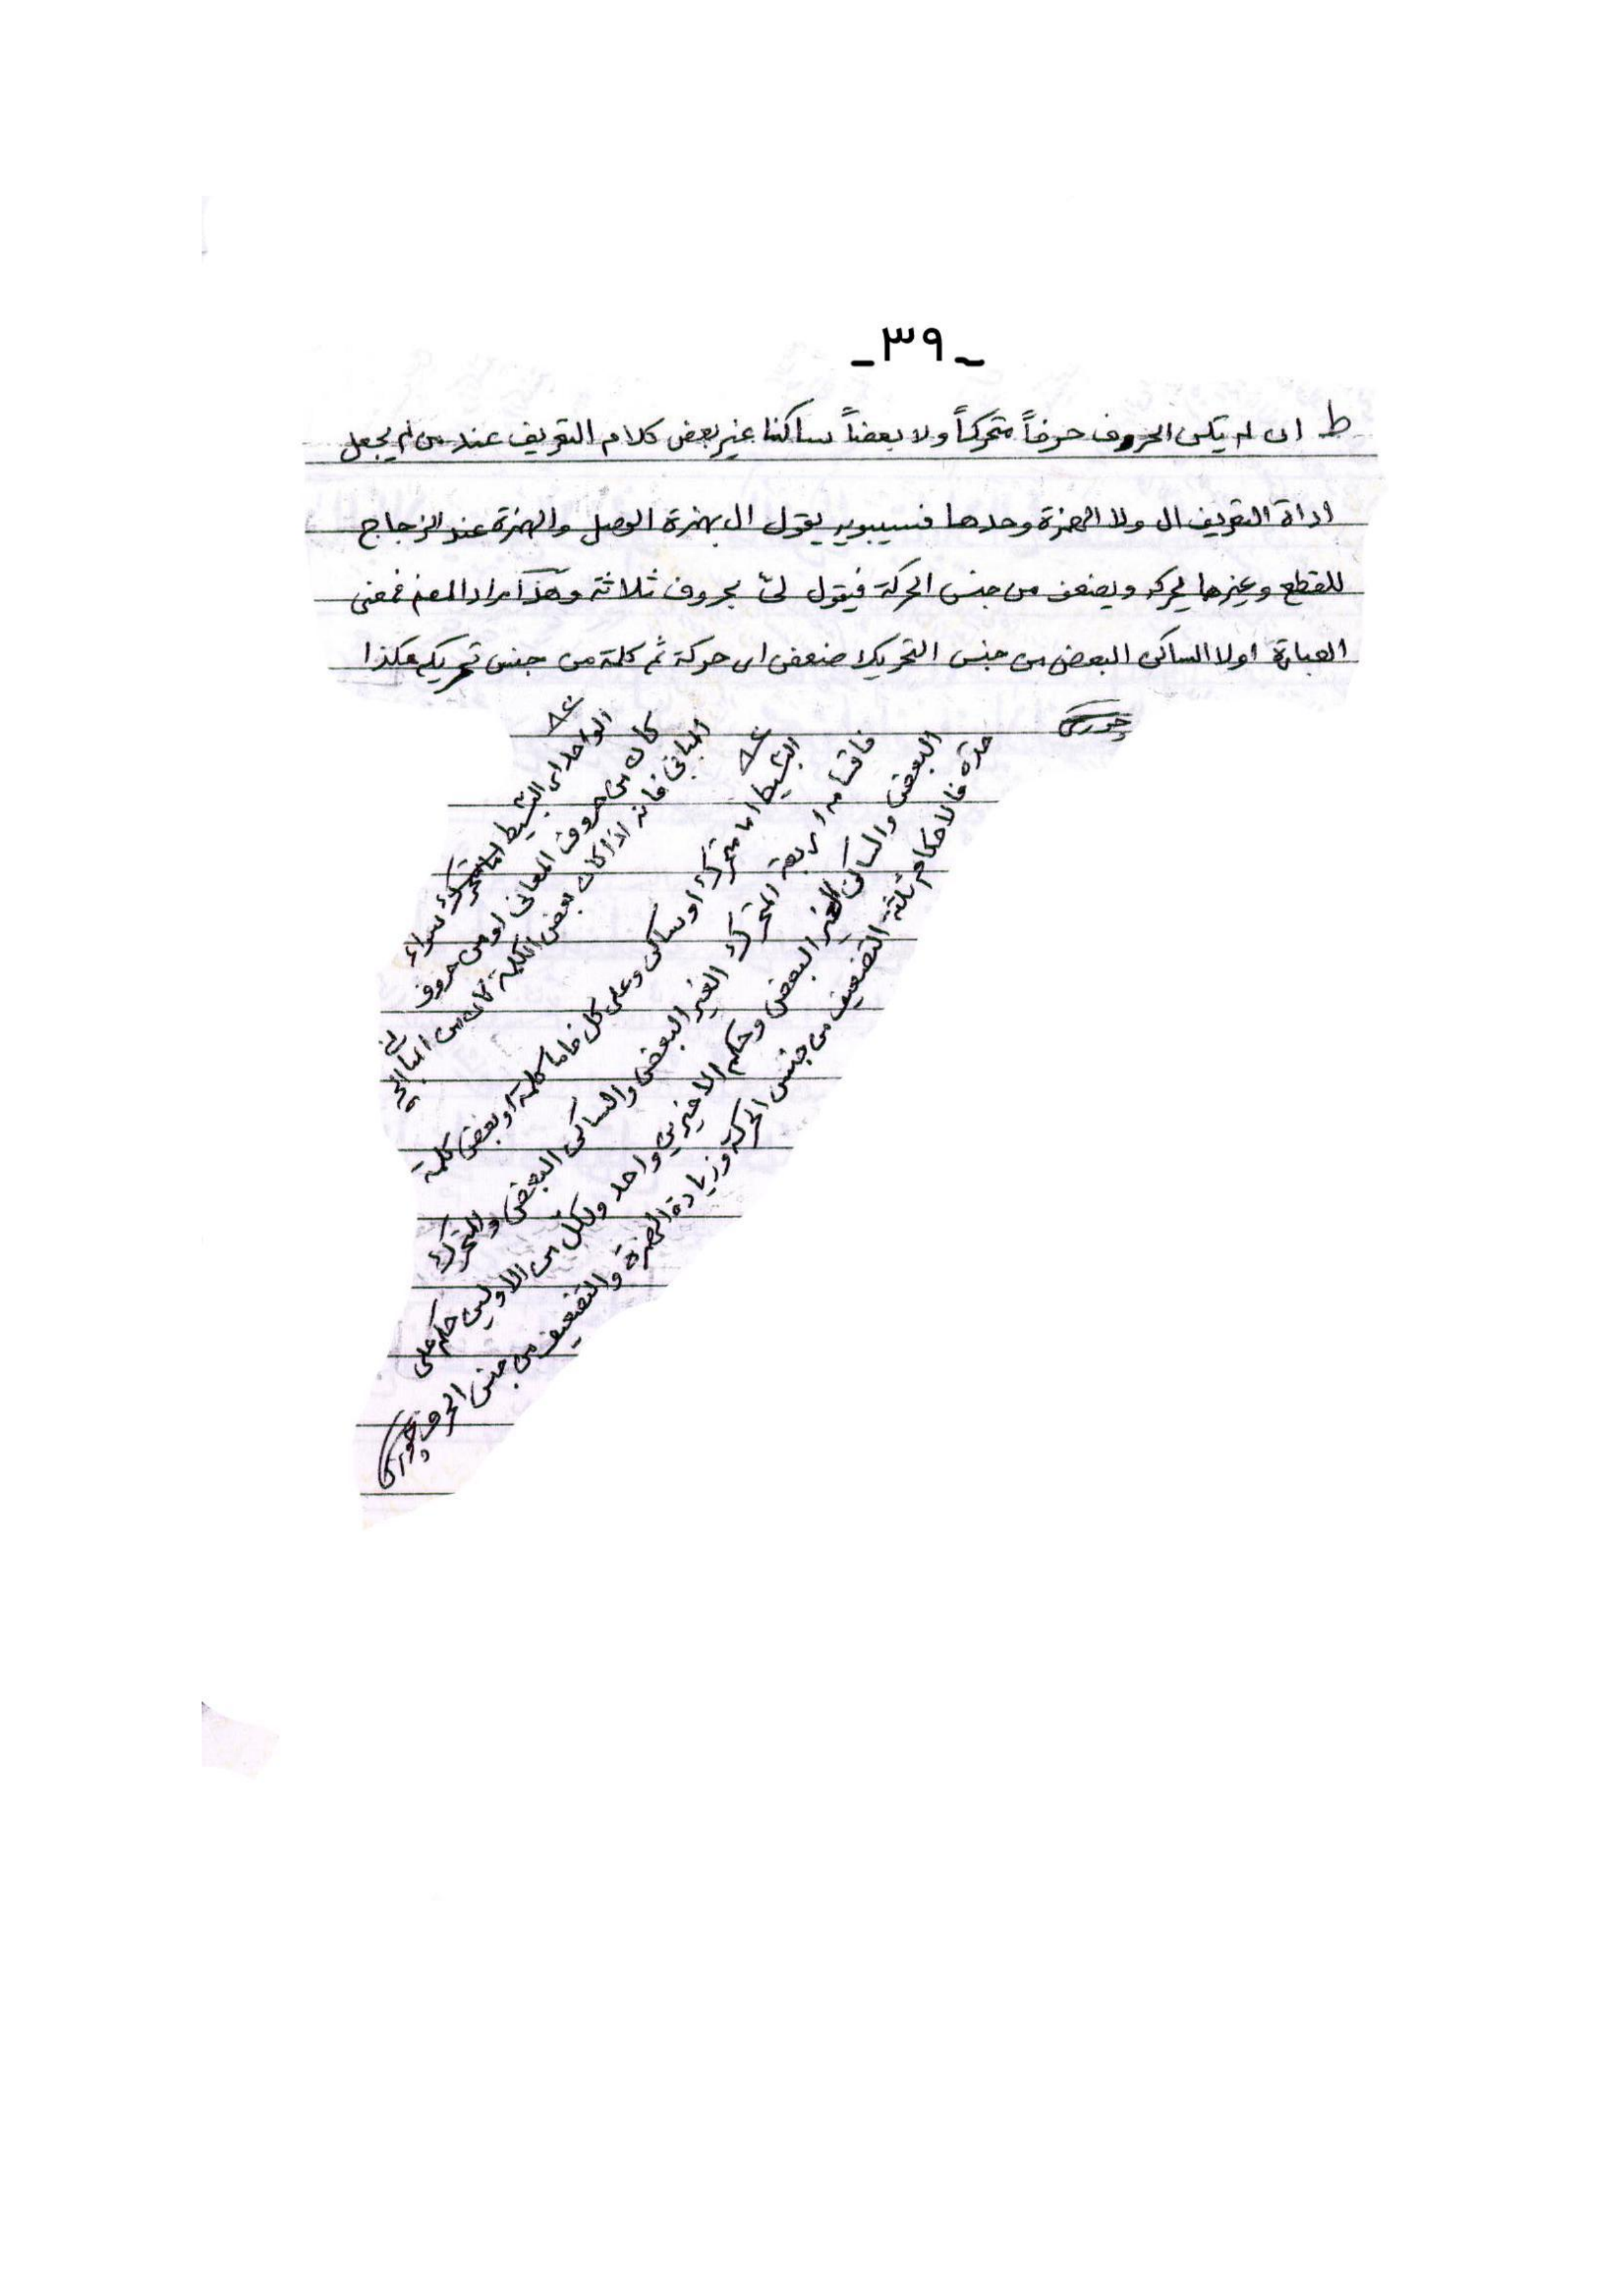 ـ٣٩ـ
ط ان لم يكن الحروف حرفاً متحركاً ولا بعضاً ساكنا غير بعض كلام التعريف عند من لم يجعل
اداة التعريف ال ولا الهمزة وحدها فسيبويه يقول ال بهمزة الوصل والهمزة عند الزجاج
للقطع وغيرها يحركه ويضعف من جنس الحركة فيقول لىّ بحروف ثلاثة وهذا مراد المص فمعنى
العبارة اولا الساكن البعض من جنس التحريك ضعف اى حركة ثم كلمة من جنس تحريكه هكذا
جورى
الواحد اى البسيط اما متحرك سواء
كان من حروف المعانى او من حروف
المبانى فانه اذا كان بعض الكلمة كان من
البسيط اما متحرك او ساكن وعلى كل فاما كلمة او بعض كلمة
فاقسامه اربعة المتحرك الغير البعض والساكن البعض والمتحرك
البعض والساكن الغير البعض وحكم الاخيرين واحد ولكل من الاولين حكم على
حدة فالاحكام ثلثة التضعيف من جنس الحركة وزيادة الهمزة والتضعيف من جنس الحروف